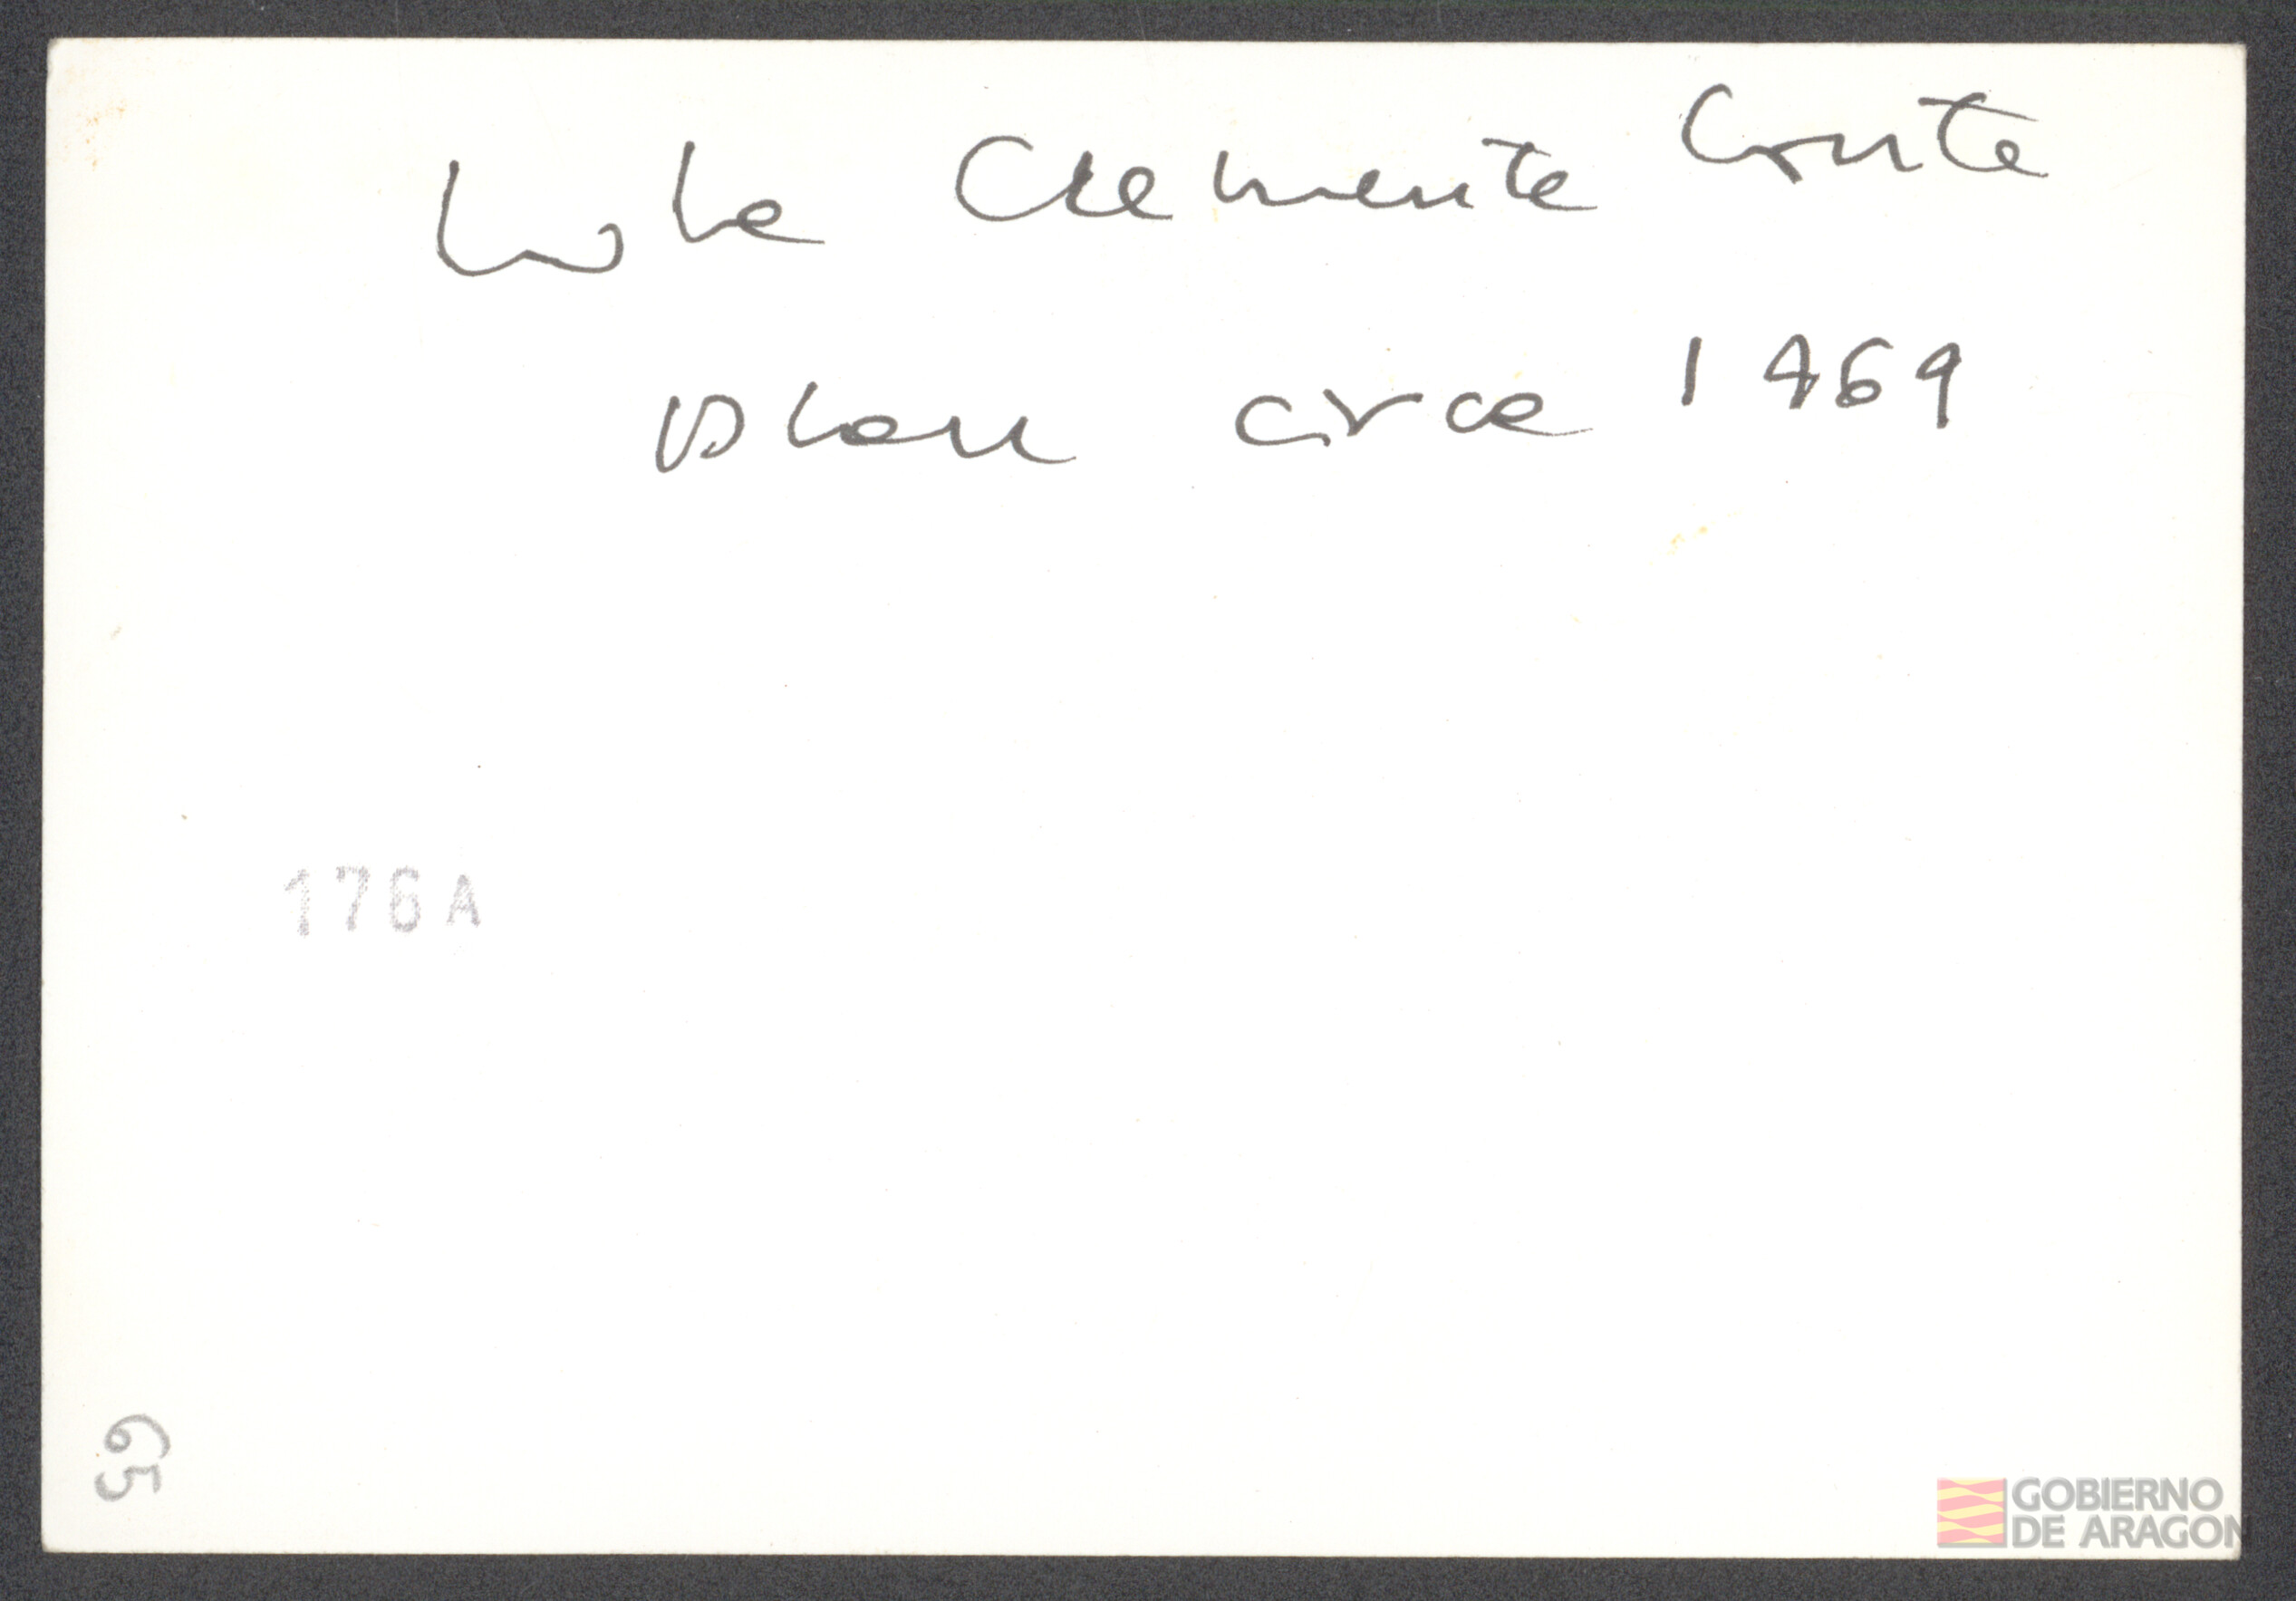 Lola Clemente Conte
Plan circa 1969
176A
65
GOBIERNO
DE ARAGON